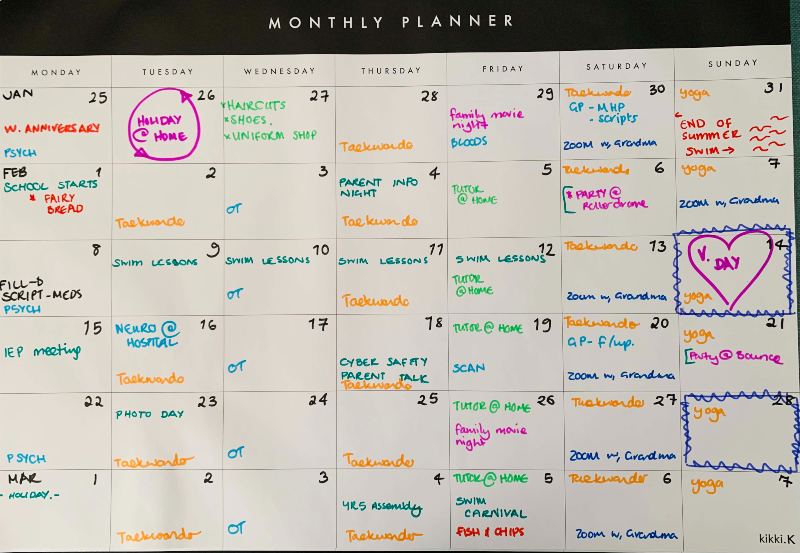 MONTHLY PLANNER
MONDAY TUESDAY WEDNESDAY THURSDAY FRIDAY SATURDAY SUNDAY
JAN 25
W. ANNIVERSARY
PSYCH
26
HOLIDAY
@ HOME
27
*HAIRCUTS
*SHOES.
*UNIFORM SHOP
28
Taekwondo
29
family movie
night
BLOODS
30
Taekwondo
GP - MHP
- scripts
ZOOM w, Grandma
31
yoga
END OF
SUMMER
SWIM →
FEB 1
SCHOOL STARTS
* FAIRY
BREAD
2
Taekwondo
3
OT
4
PARENT INFO
NIGHT
Taekwondo
5
TUTOR
@ HOME
6
Taekwondo
* PARTY @
Rollerdrome
7
yoga
ZOOM w, Grandma
8
FILL-D
SCRIPT-MEDS
PSYCH
9
SWIM LESSONS
10
SWIM LESSONS
OT
11
SWIM LESSONS
Taekwondo
12
SWIM LESSONS
TUTOR
@ HOME
13
Taekwondo
zoom w, Grandma
14
V.
DAY
yoga
15
IEP meeting
16
NEURO @
HOSPITAL
Taekwondo
17
OT
18
CYBER SAFETY
PARENT TALK
Taekwondo
19
TUTOR @ HOME
SCAN
20
Taekwondo
GP- f/up.
ZOOM w, Grandma
21
yoga
Party @ Bounce
22
PSYCH
23
PHOTO DAY
Taekwondo
24
OT
25
Taekwondo
26
TUTOR @ HOME
family movie
night
27
Taekwondo
ZOOM w, Grandma
28
yoga
MAR 1
- HOLIDAY. -
2
Taekwoondo
3
OT
4
YR5 Assembly
Taekwondo
5
TUTOR @ HOME
SWIM
CARNIVAL
FISH & CHIPS
6
Taekwondo
ZOOM w, Grandma
7
yoga
kikki.K